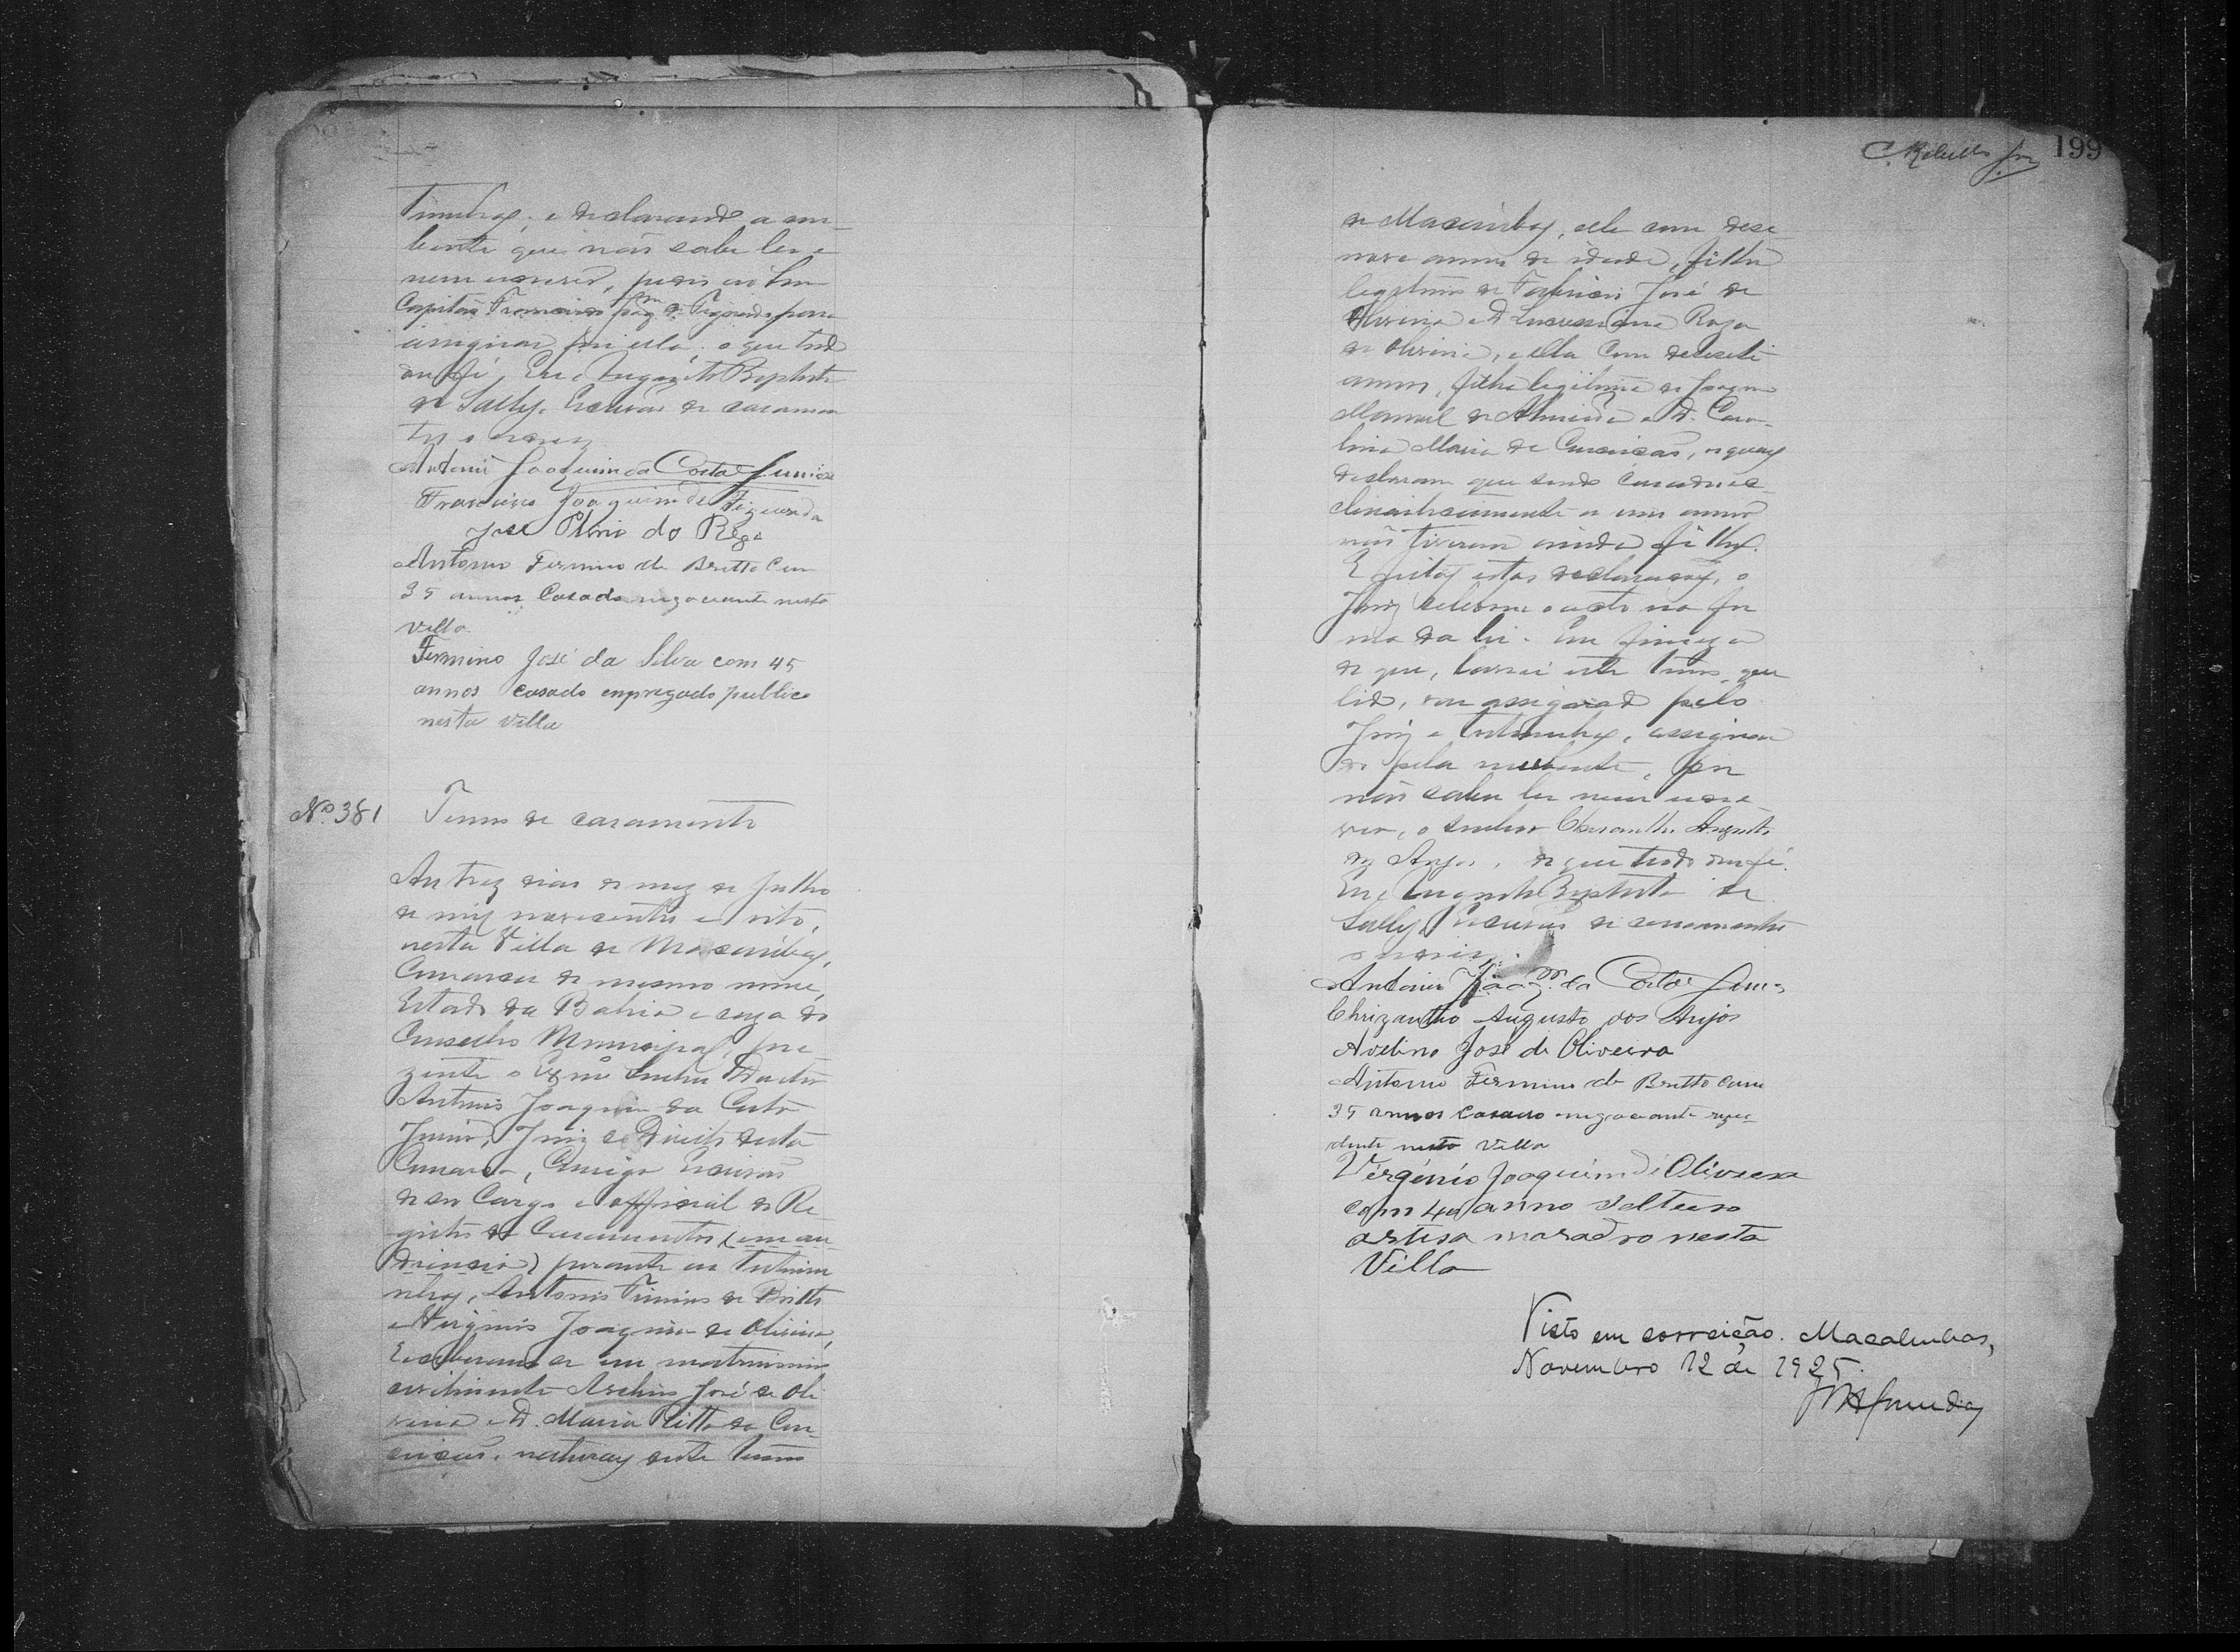 e declarando a con-
trahente que não sabe ler e
nem escrever, pedio ao Snr
Capitão Francisco Joaqm de Figueredo para
assignar por ella, o que tudo
dou fé. Eu Augusto Baptista
de Escrivão de casamen
tos o escrevy
Antonio Joaquim da Costa Junior
Francisco Joaquim de Figueredo
José Plinio do Rego
Antonio Fermino de Britto Com
35 annos Casado negociante nesta
villa.
Fermino José da Silva com 45
annos casado empregado publico
nesta villa
Nº 381 Termo de casamento
Aos trez dias do mez de Julho
de mil novecentos e oito,
nesta Villa de Macaúbas,
Comarca do mesmo nome,
Estado da Bahia e caza do
Conselho Municipal, pre
zente o Exmo Senhor Doutor
Antonio Joaquim da Costa
Junior, Juiz de Direito desta
Comarca, Comigo Escrivão
de seu Cargo e official do Re
gistro de Casamentos (em au-
diencia) perante as testemu
nhas, Antonio Firmino de Britto
e Virginio Joaquim de Oliveira,
Receberam-se em matrimonio
civilmente Avelino José de Oli
veira e D. Maria Ritta da Con-
ceição, naturaes deste termo
199
de Macaúbas, elle com deze
nove annos de idade, filho
legitimo de José de
Oliveira e D. Roza
de Oliveira, e ella com dezesete
annos, filha legitima de Joaquim
Manoel de Almeida e D. Caro-
lina Maria da Conceição, os quaes
declaram que sendo casados ec-
clesiasticamente a um anno
não tiveram ainda filhos.
E feitas estas declarações, o
Juiz celebrou o acto na for
ma da lei. Em firmeza
de que, lavrei este termo, que
lido, vai assignado pelo
Juiz e testemunhas, assignan
do pela nubente, por
não saber ler nem escre
ver, o Senhor Chrizantho Augusto
dos Anjos, de que tudo dou fé.
Eu Augusto Baptista de
Escrivão de casamentos
o escrevi.
Antonio Joaqm da Costa Junior
Chrizantho Augusto dos Anjos
Avelino José de Oliveira
Antonio Fermino de Britto com
35 annos casado negociante rezi-
dente nesta Villa
Vérgénio Joaquim de Oliveira
com 40 anno solteiro
artista moradro nesta
Villa
Visto em correição. Macahubas,
Novembro 12 de 1925.